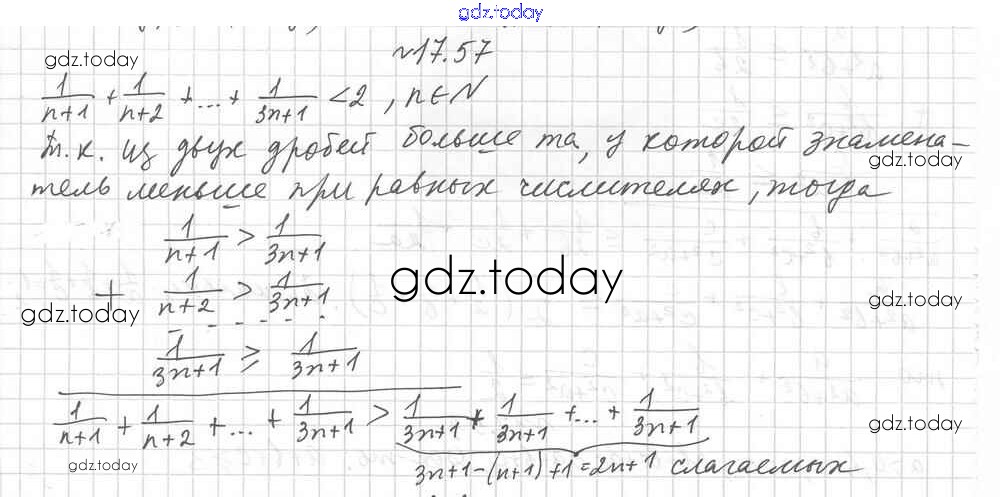 gdz.today
№17.57
gdz.today
1/(n+1) + 1/(n+2) + ... + 1/(3n+1) < 2, n∈N
Т.к. из двух дробей больше та, у которой знамена-
gdz.today
тель меньше при равных числителях, тогда
1/(n+1) > 1/(3n+1)
gdz.today
+ 1/(n+2) > 1/(3n+1)
gdz.today
gdz.today
- - - - - - -
1/(3n+1) ≥ 1/(3n+1)
1/(n+1) + 1/(n+2) + ... + 1/(3n+1) > 1/(3n+1) + 1/(3n+1) + ... + 1/(3n+1)
gdz.today
gdz.today
3n+1-(n+1)+1=2n+1 слагаемых